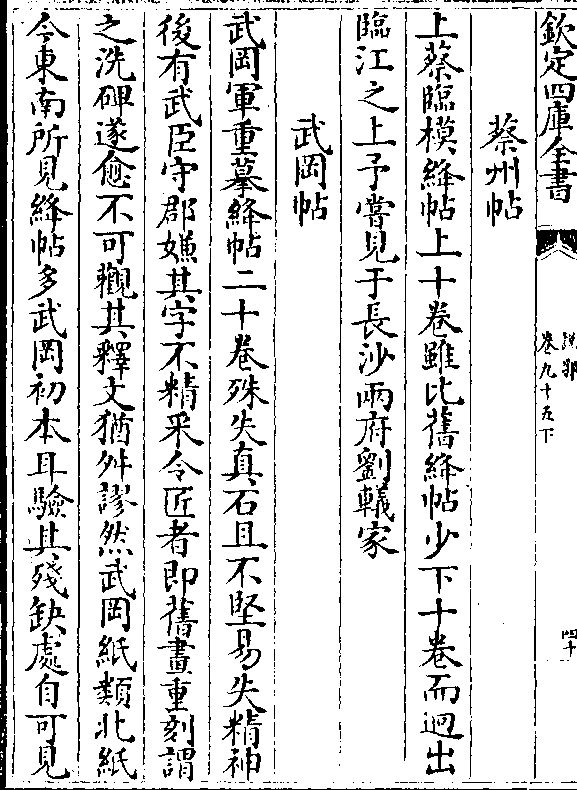 欽定四庫全書
說郛
卷九十五下
四十
蔡州帖
上蔡臨模絳帖上十卷雖比舊絳帖少下十卷而迥出
臨江之上予嘗見于長沙兩府劉轙家
武岡帖
武岡軍重摹絳帖二十卷殊失真石且不堅易失精神
後有武臣守郡嫌其字不精采令匠者即舊畫重刻謂
之洗碑遂愈不可觀其釋文猶舛謬然武岡紙類北紙
今東南所見絳帖多武岡初本耳驗其殘缺處自可見